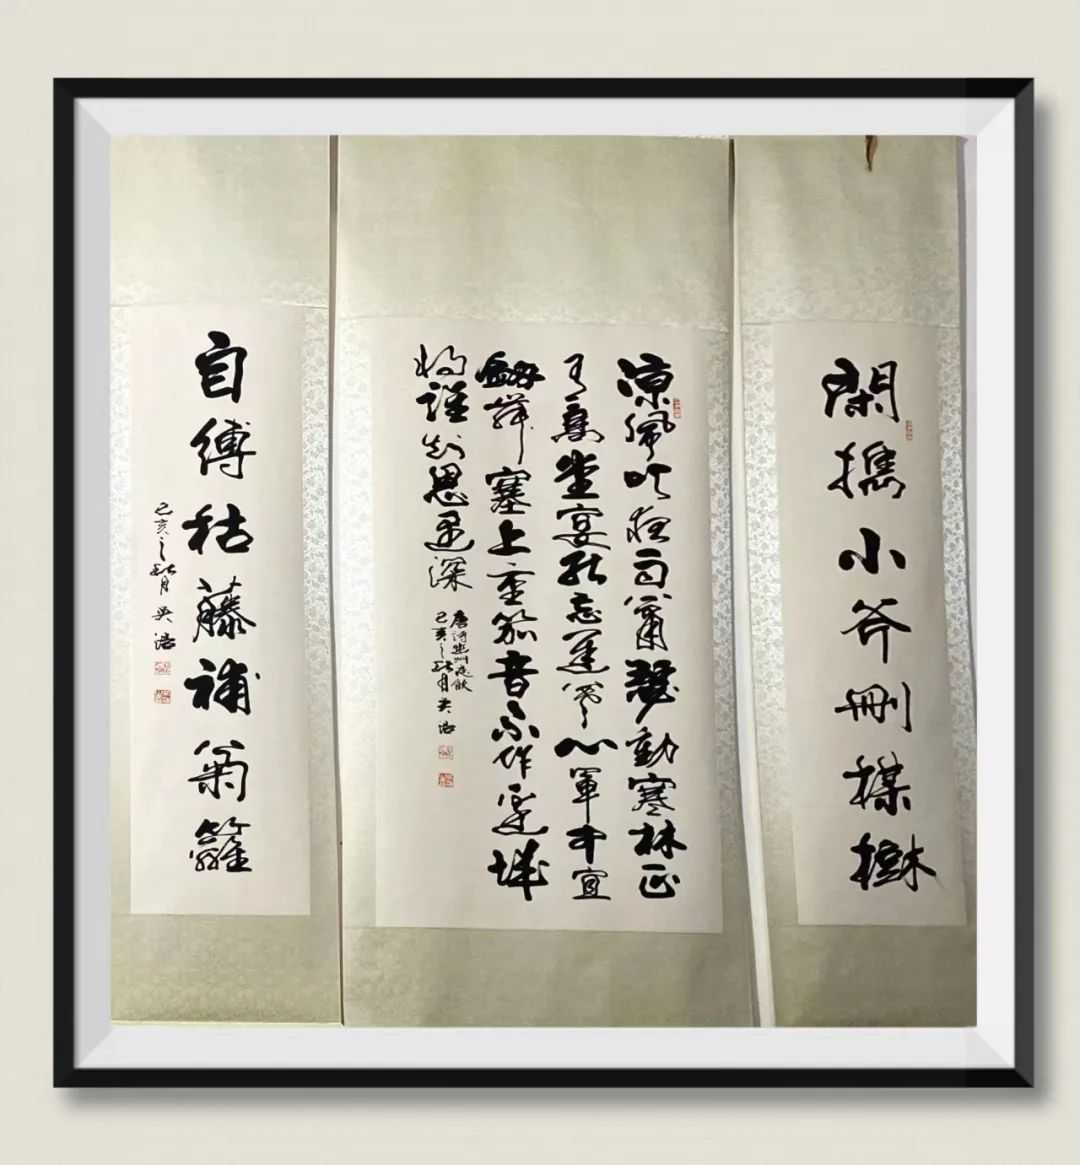 閑攜小斧刪楳樹
涼風吹夜雨蕭瑟動寒林正
有高堂宴能忘遲暮心軍中宜
劍舞塞上重笳音不作邊城
將誰知恩遇深
唐詩幽州夜飲
己亥之秋月吳浩
自縛枯藤補菊籬
己亥之秋月吳浩